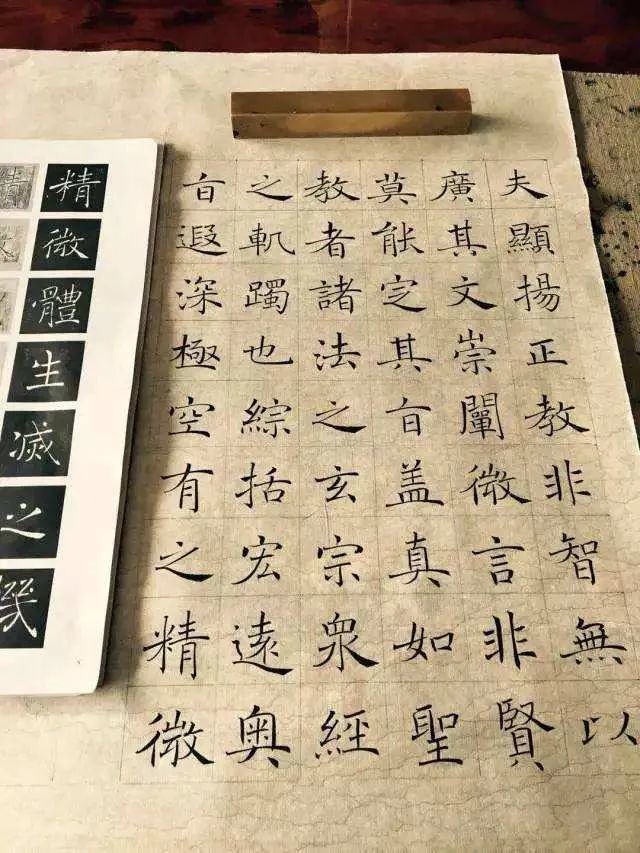 夫顯揚正教非智無以
廣其文崇闡微言非賢
莫能定其旨盖真如聖
教者諸法之玄宗衆經
之軌躅也綜括宏遠奥
旨遐深極空有之精微
精微體生滅之機